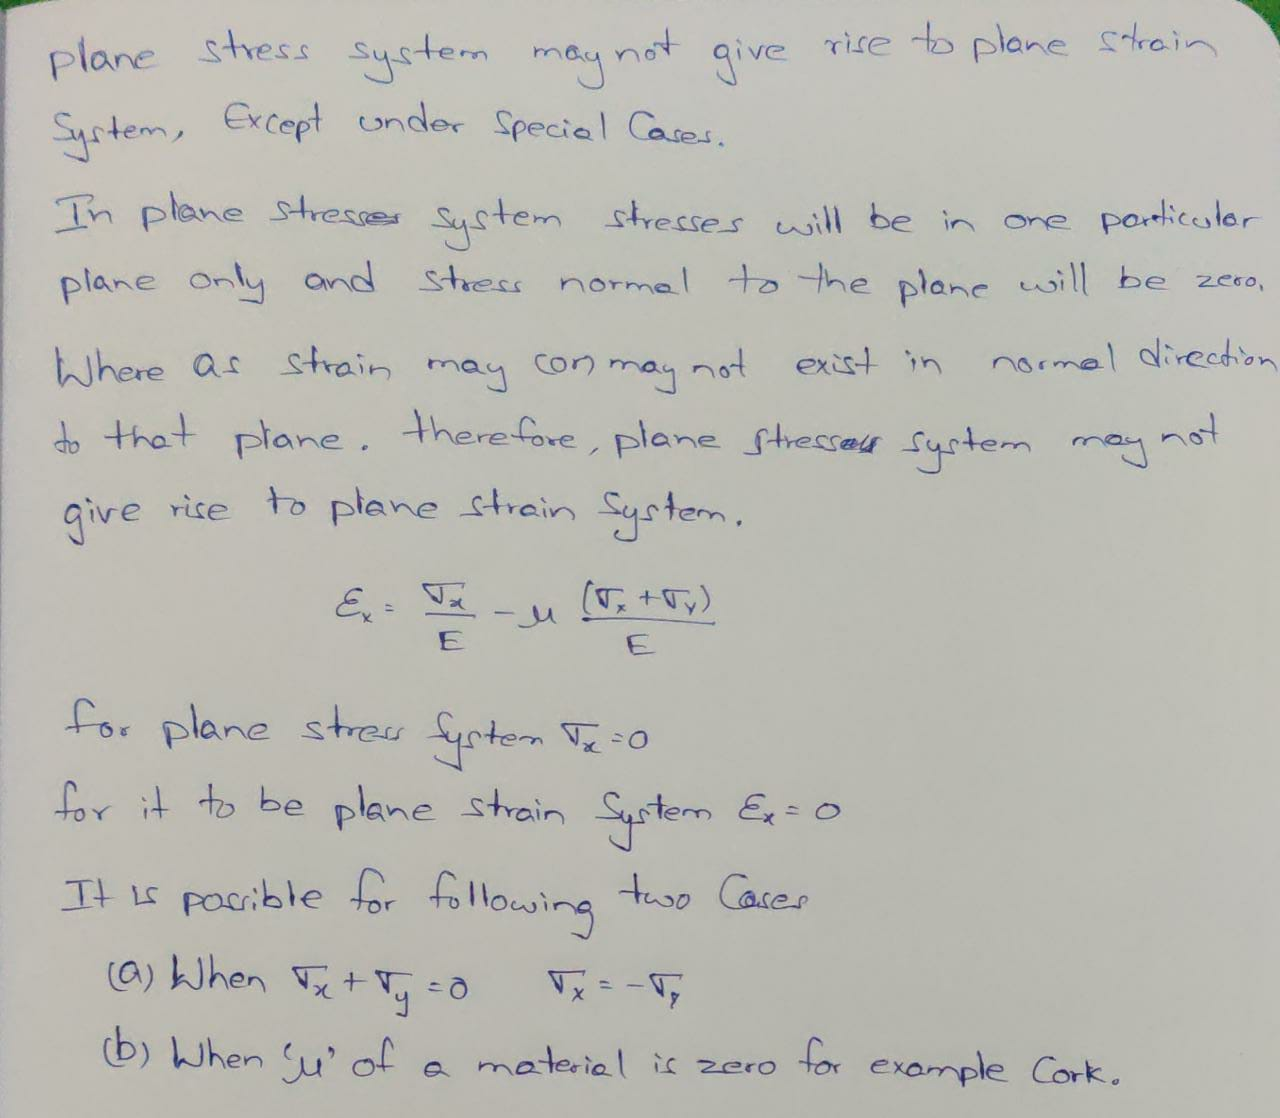 plane stress system may not give rise to plane strain
System, Except under Special Cases.
In plane stresses system stresses will be in one particular
plane only and stress normal to the plane will be zero.
Where as strain may (or) may not exist in normal direction
to that plane. therefore, plane stresses system may not
give rise to plane strain System.
εx = σx/E - μ (σx + σy)/E
for plane stress System σx = 0
for it to be plane strain System εx = 0
It is possible for following two Cases
(a) When σx + σy = 0 σx = -σy
(b) When 'μ' of a material is zero for example Cork.